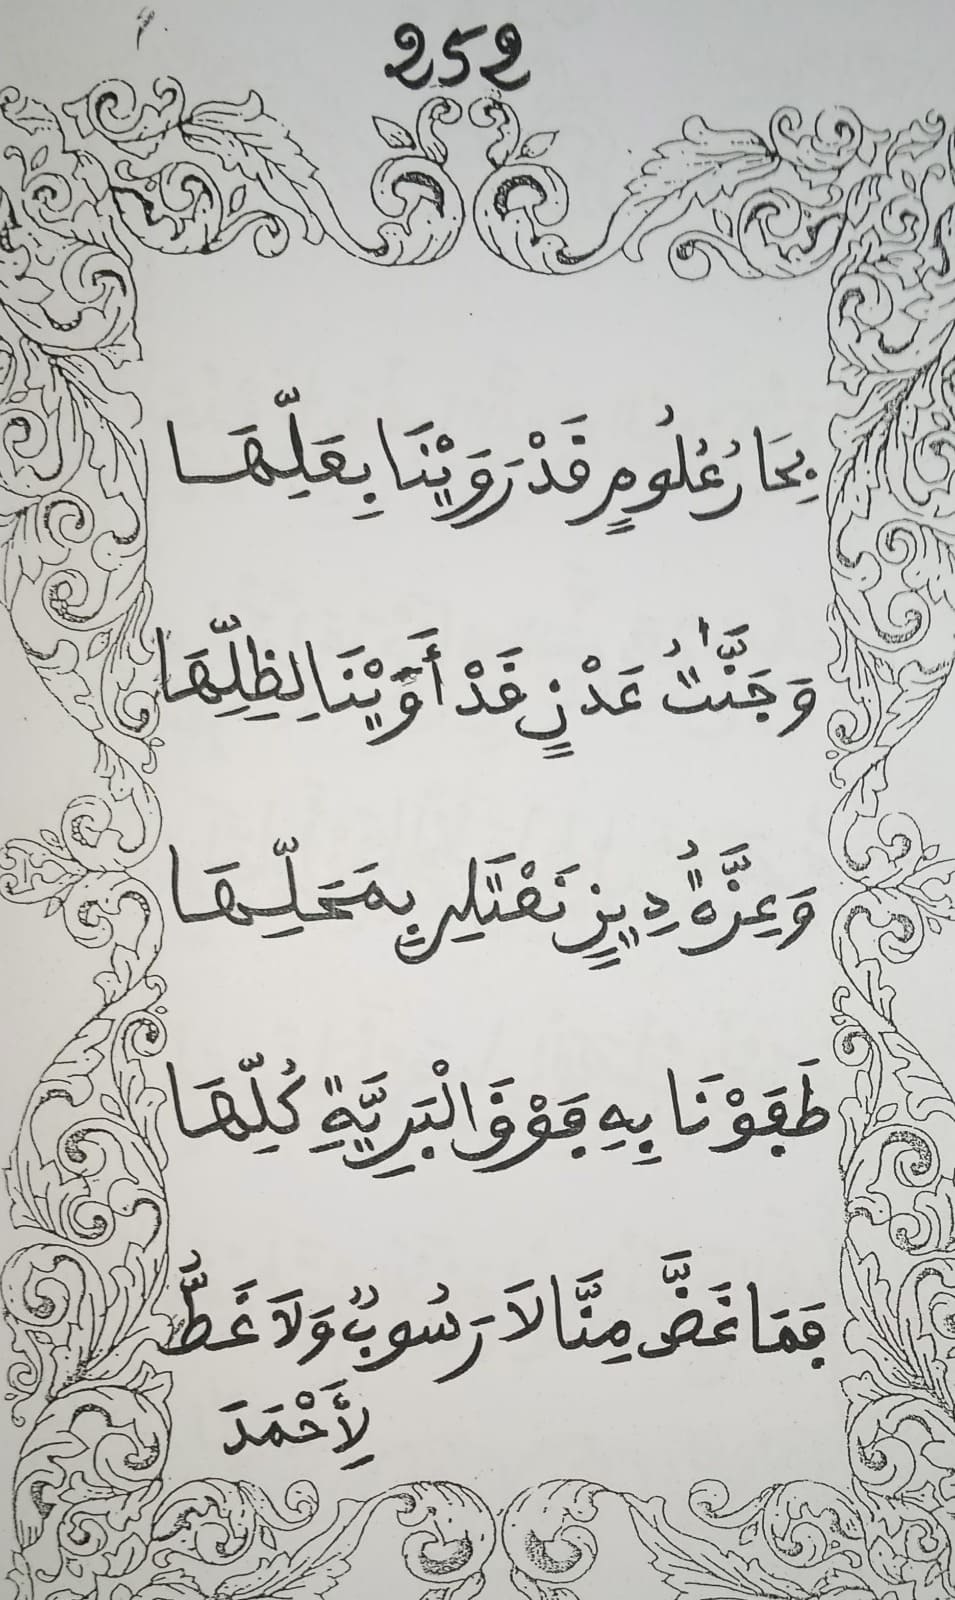 252
بِحَارُ عُلُومٍ قَدْ رَوَيْنَا بِعَلِّهَا
وَجَنَّٰتُ عَدْنٍ قَدْ أَوَيْنَا لِظِلِّهَا
وَعِزَّةُ دِينٍ نَعْتَلِي بِمَحَلِّهَا
طَفَوْنَا بِهِ فَوْقَ الْبَرِيَّةِ كُلِّهَا
فَمَا غَضَّ مِنَّا لَا رَسُوبٌ وَلَا غَطُّ
لِأَحْمَدَ